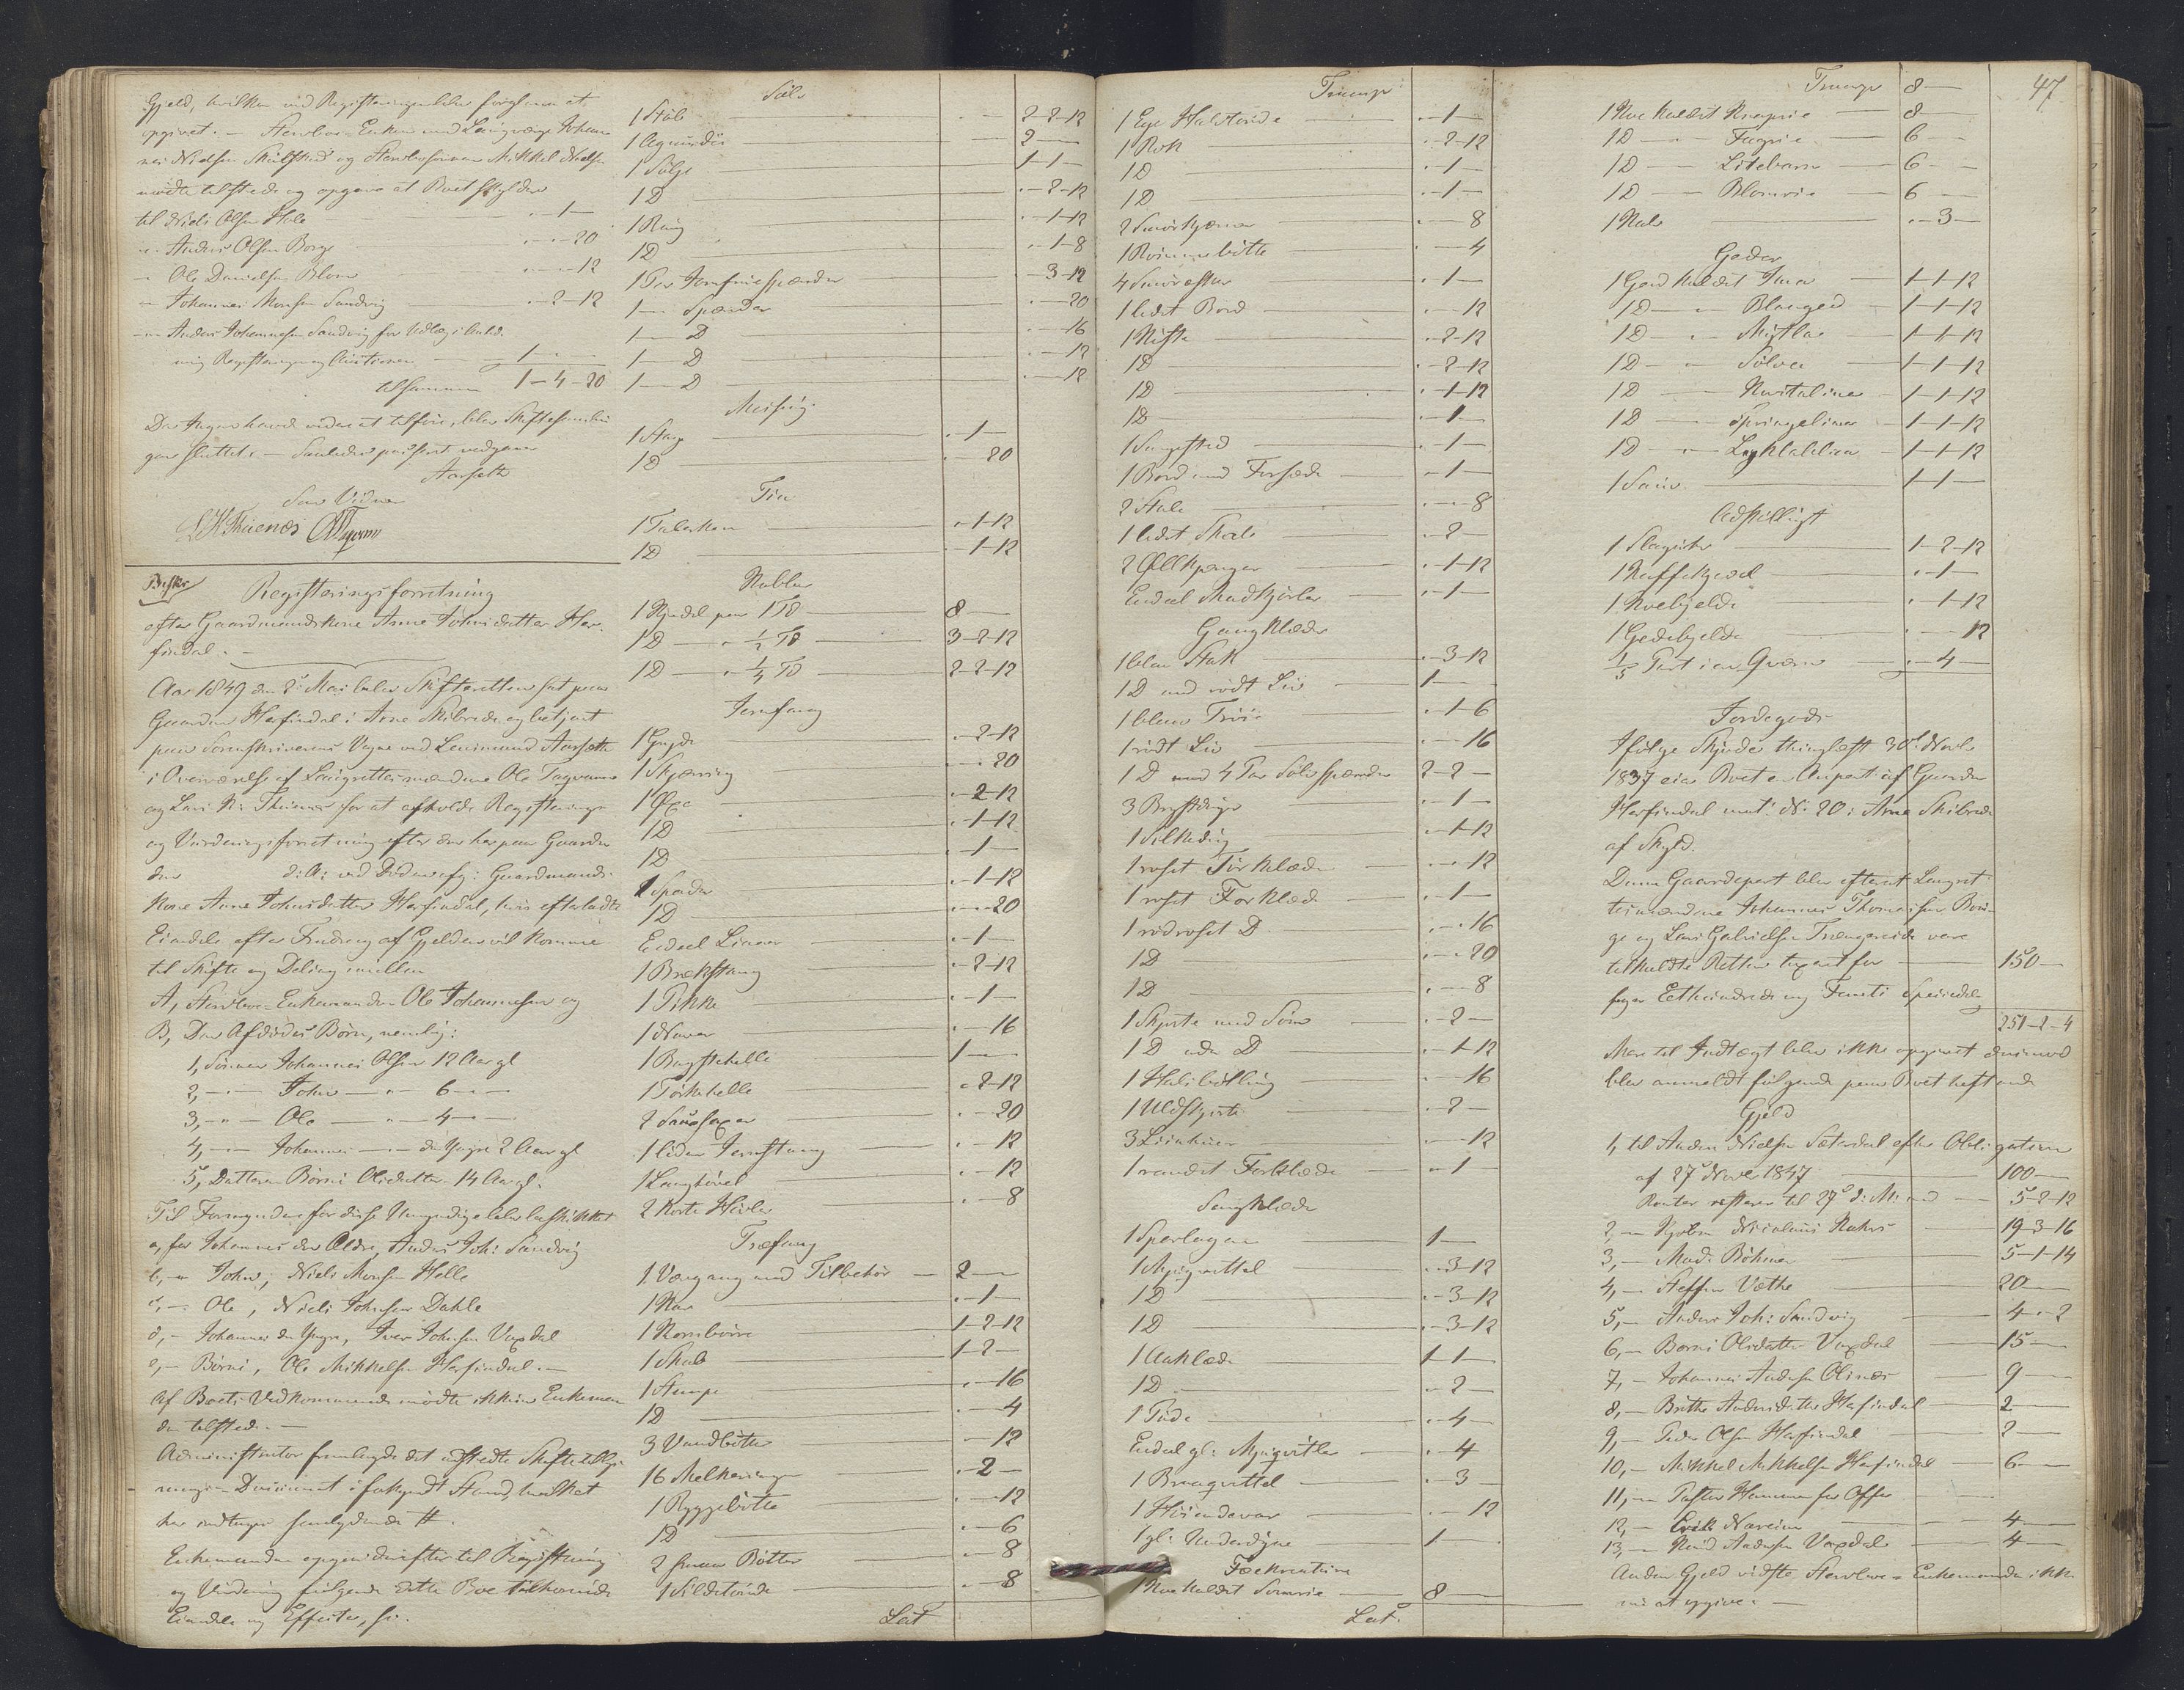 Gjeld, hvilken ved Registeringen blev forglemt at
opgivet. — Stervboe-Enken med Laugværge Johan-
nes Nielsen Skulstad og Stervbosønnen Mikkel Nielsen
mødte tilstede og opgave at Boet skylder
til Niels Olsen Hole .-1-
— Anders Olsen Borge .-.-20
— Ole Danielsen Blom .-.-12
— Johannes Monsen Sandvig .-2-12
— Anders Johannesen Sandvig for Udlæg i Anled-
ning Registeringen og Auctionen 1-.-.
tilsammen 1-4-20
Da Ingen havde videre at tilføre, blev Skiftesamlin-
gen sluttet. — Saaledes passeret vedgaaer
Aarseth
Som Vidner
L. N. Thuenæs
Beskr.
Registeringsforretning
efter Gaardmandskone Anne Johnsdatter Her-
findal. —
Aar 1849 den 2den Mai blev Skifteretten sat paa
Gaarden Herfindal i Arne Skibrede og betjent
paa Sorenskriverens Vegne ved Leuimund Aarseth
i Overværelse af Laugrettesmændene Ole Tagvam
og Lars N. Thuenæs for at afholde Registerings-
og Vurderingsforretning efter den her paa Gaarden
den d: A: ved Døden afg: Gaardmands-
kone Anne Johnsdatter Herfindal, hvis efterladte
Eiendele efter Fradrag af Gjelden vil komme
til Skifte og Deling imellem
A, Stervboe-Enkemanden Ole Johannesen og
B, Den Afdødes Børn, nemlig:
1, Sønnen Johannes Olsen 12 Aar gl
2, — John — 6 —
3, — Ole — 4 —
4, — Johannes — den Yngre 2 Aar gl
5, Datteren Børni Olsdatter 14 Aar gl.
Til Formyndere for disse Umyndige blev beskikket
a, for Johannes den Ældre, Anders Joh: Sandvig
b, — John, Niels Monsen Helle
c, — Ole, Niels Johnsen Dahle
d, — Johannes den Yngre, Iver Johnsen Vaxdal
e, — Børni, Ole Mikkelsen Herfindal. —
Af Boets Vedkommende mødte ikkun Enkeman-
den tilstede. —
Administrator fremlagde det udstedte Skiftetillys-
nings-Document i forkyndt Stand, hvilket
her indtages saalydende #.
Enkemanden opgav derefter til Registering
og Vurdering følgende dette Boe tilhørende
Eiendele og Effecter, s:
Sølv
1 Støb 2-2-12
1 2—
1 Sølje 1-1-
1 D .-2-12
1 Ring .-1-12
1 D .-1-8
1 Par Jomfruespænder .-3-12
1 — Spænder .-.-20
1 — D .-.-16
1 — D .-.-12
1 — D .-.-12
Messing
1 Stage .-1-
1 D .-.-20
Tin
1 Talerken .-1-12
1 D .-1-12
Kobber
1 Kjedel paa 1 Td 8—
1 D — 1/2 Td 3-2-12
1 D — 1/4 Td 2-2-12
Jernfang
1 Gryde .-2-12
1 Skjæring .-.-20
1 Øxe .-2-12
1 D .-1-12
1 D .-1-
1 Spade .-1-12
1 D .-.-20
Endeel Linear .-1-
1 Brækstang .-2-12
1 Pikke .-1-
1 Naver .-.-16
1 Bagstehelle 1—
1 Tørkehelle .-2-12
2 Sausaxer .-.-20
1 liden Jernstang .-.-12
1 Langhøvel .-.-12
2 korte Høvler .-.-8
Træfang
1 Vævgang med Tilbehør 2—
1 Kar .-1-
1 Kornbøire 1-2-12
1 Skab 1-2-
1 Stampe .-.-16
1 D .-.-4
3 Vandbøtter .-.-12
16 Melkeringe .-2-
1 Byggebøtte .-.-12
1 D .-.-6
2 smaae Bøtter .-.-8
1 Sildetønde .-.-8
Lat
Transp:
1 Ege Halvtønde .-1-
1 Rok .-2-12
1 D .-1-
1 D .-1-
2 Smørkjerner .-.-8
1 Rømmebøtte .-.-4
4 Smøresker .-1-
1 lidet Bord .-.-12
1 Kiste .-2-12
1 D .-2-12
1 D .-1-12
1 D .-1-
1 Sengested .-1-
1 Bord med Forsæde .-1-
2 Stole .-.-8
1 lidet Skab .-2-
2 Øllkjenger .-1-12
Endeel Madkjørler .-1-
Gangklæder
1 blaa Stak .-3-12
1 D med rødt Liv 1—
1 blaa Trøie .-1-6
1 rødt Liv .-.-16
1 D med 4 Par Sølvspænder 2-2-
3 Brystduge .-1-
1 Silkedug .-1-12
1 roset Tørklæde .-.-12
1 roset Forklæde .-1-
1 rødroset D .-.-16
1 D .-.-20
1 D .-.-8
1 Skjorte med Søm .-2-
1 D uden D .-1-12
1 Halsbøtling .-.-16
1 Uldskjorte .-2-
3 Liinhuer .-.-12
1 randet Forklæde .-1-
Sengklæder
1 Sperlagen 1—
1 Mjugvittel .-3-12
1 D .-3-12
1 D .-3-12
1 Aaklæde 1-1-
1 D .-2-
1 Pude .-4-
Endeel gl: Mjugvitler .-.4
1 Brageqvittel .-.3
1 Høiendevar .-.-12
1 gl: Underdyne 1—
Fæekreature
1 Koe kaldet Somrie 8—
Lat.
47
Transp 8—
1 Koe kaldet Knaprie 8—
1 D — Fagrie 6—
1 D — Litebarn 6—
1 D — Blomrie 6—
1 Kalv .-3-
Geder
1 Gied kaldet Snar 1-1-12
1 D — Blaageid 1-1-12
1 D — Mistlar 1-1-12
1 D — Sølva 1-1-12
1 D — Kvitalina 1-1-12
1 D — Springelina 1-1-12
1 D — 1-1-12
1 Sau 1-1-
Adskilligt
1 Slaguhr 1-2-12
1 Kaffekjedel .-1-
1 Koebjelde .-1-12
1 Gedebjelde .-.-12
1/3 Part i en Qværn .-4-
Jordegods
Ifølge Skjøde thinglæst 30te Novbr
1837 eier Boet en Anpart af Gaarden
Herfindal mat: No 20 i Arne Skibrede
af Skyld.
Denne Gaardepart blev efterat Laugret-
tesmændene Johannes Thomassen Bor-
ge og Lars Gabrielsen Trængereide vare
tilkaldte Retten taxeret for 150—
siger Eethundrede og Femti Speciedaler
251-2-4
Mere til Indtægt blev ikke opgivet derimod
blev anmeldt følgende paa Boet heftende
Gjeld
1, til Anders Nielsen Sæterdal efter Obligation
af 27de Novbr 1847 100—
Renter resterer til 27de d: M: med 5-2-12
2, — Kjøbm Nicolaus Kahrs 19-3-16
3, — Mad: Bøhmer 5-1-14
4, — Steffen Væthe 20—
5, — Anders Joh: Sandvig 4-.-2
6, — Børni Olsdatter Vaxdal 15—
7, — Johannes Andersen Olsnæs 9—
8, — Brithe Andersdatter Herfindal 2—
9, — Peder Olsen Herfindal 2—
10, — Mikkel Mikkelsen Herfindal 6—
11, — Pastor Hammer for Offer
12, — Erik Næreim 4—
13, — Knud Andersen Vaxdal 4—
Anden Gjeld vidste Stervboe-Enkemanden ikke
nu at opgive. —